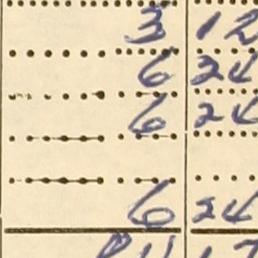 3 12
6 24
6 24
6 24